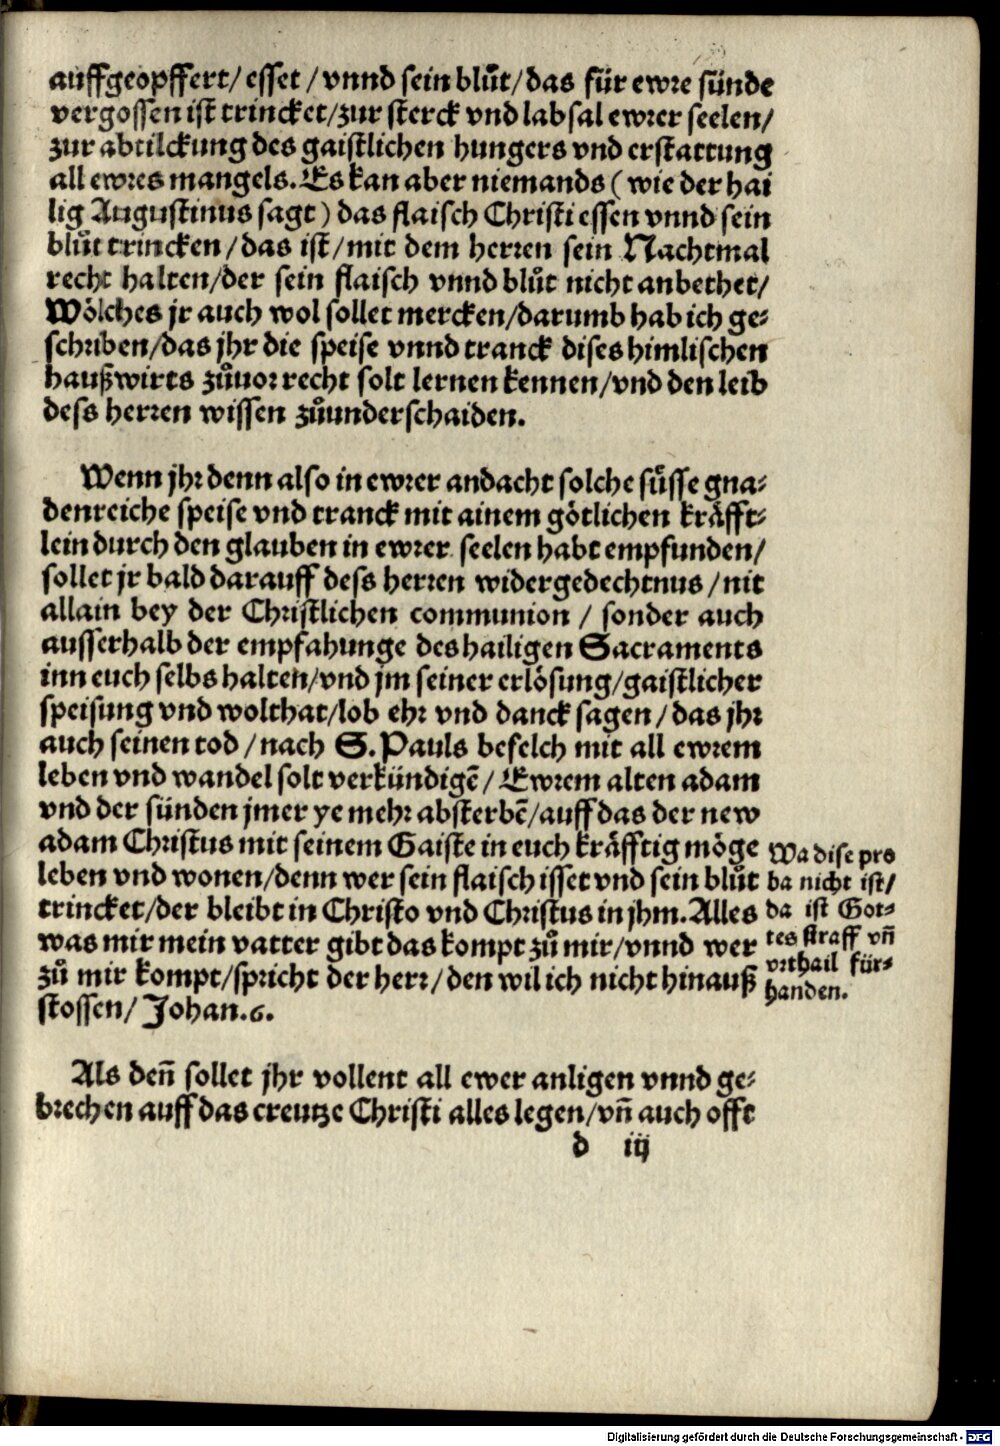 auffgeopffert/ esset / vnnd sein blůt/das für ewre sünde
vergossen ist trincket/zur sterck vnd labsal ewrer seelen/
zur abtilckung des gaistlichen hungers vnd erstattung
all ewres mangels. Es kan aber niemands ( wie der hai
lig Augustinus sagt ) das flaisch Christi essen vnnd sein
blůt trincken /das ist/ mit dem herren sein Nachtmal
recht halten/der sein flaisch vnnd blůt nicht anbethet/
Wölches jr auch wol sollet mercken/darumb hab ich ge-
schriben/das jhr die speise vnnd tranck dises himlischen
haußwirts zůuor recht solt lernen kennen/vnd den leib
dess herren wissen zůunderschaiden.
Wenn jhr denn also in ewrer andacht solche süsse gna-
denreiche speise vnd tranck mit ainem götlichen kräfft-
lein durch den glauben in ewrer seelen habt empfunden/
sollet jr bald darauff dess herren widergedechtnus / nit
allain bey der Christlichen communion / sonder auch
ausserhalb der empfahunge des hailigen Sacraments
inn euch selbs halten/vnd jm seiner erlösung/gaistlicher
speisung vnd wolthat/lob ehr vnd danck sagen / das jhr
auch seinen tod / nach S. Pauls befelch mit all ewrem
leben vnd wandel solt verkündigē/ Ewrem alten adam
vnd der sünden jmer ye mehr absterbē/auff das der new
adam Christus mit seinem Gaiste in euch kräfftig möge
leben vnd wonen/denn wer sein flaisch isset vnd sein blůt
trincket/der bleibt in Christo vnd Christus in jhm. Alles
was mir mein vatter gibt das kompt zů mir/vnnd wer
zů mir kompt/spricht der herr/den wil ich nicht hinauß
stossen/ Johan.6.
Wa dise pro
ba nicht ist/
da ist Got-
tes straff vñ
vrthail für-
handen.
Als deñ sollet jhr vollent all ewer anligen vnnd ge-
brechen auff das creutze Christi alles legen/vñ auch offt
d iij
Digitalisierung gefördert durch die Deutsche Forschungsgemeinschaft - DFG